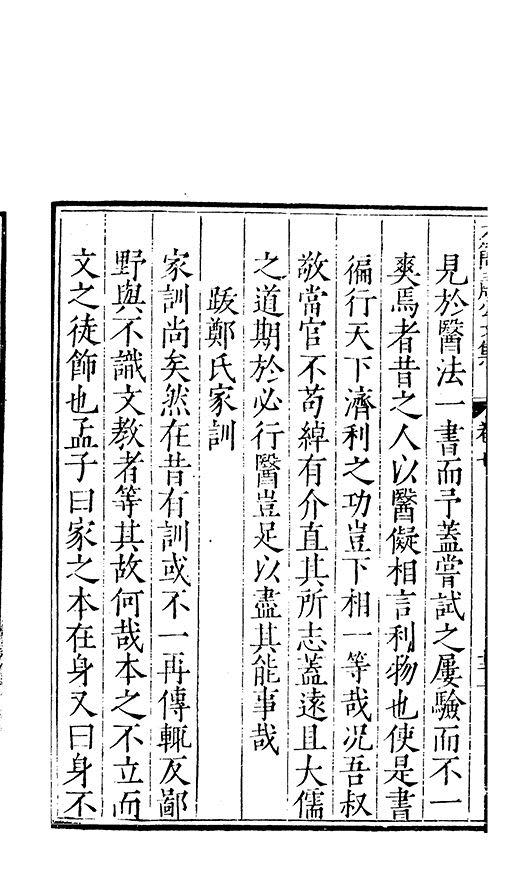 見於醫法一書而予蓋嘗試之屢驗而不一
爽焉者昔之人以醫儗相言利物也使是書
徧行天下濟利之功豈下相一等哉况吾叔
敬當官不苟綽有介直其所志蓋遠且大儒
之道期於必行醫豈足以盡其能事哉
跋鄭氏家訓
家訓尚矣然在昔有訓或不一再傳輒反鄙
野與不識文教者等其故何哉本之不立而
文之徒飾也孟子曰家之本在身又曰身不